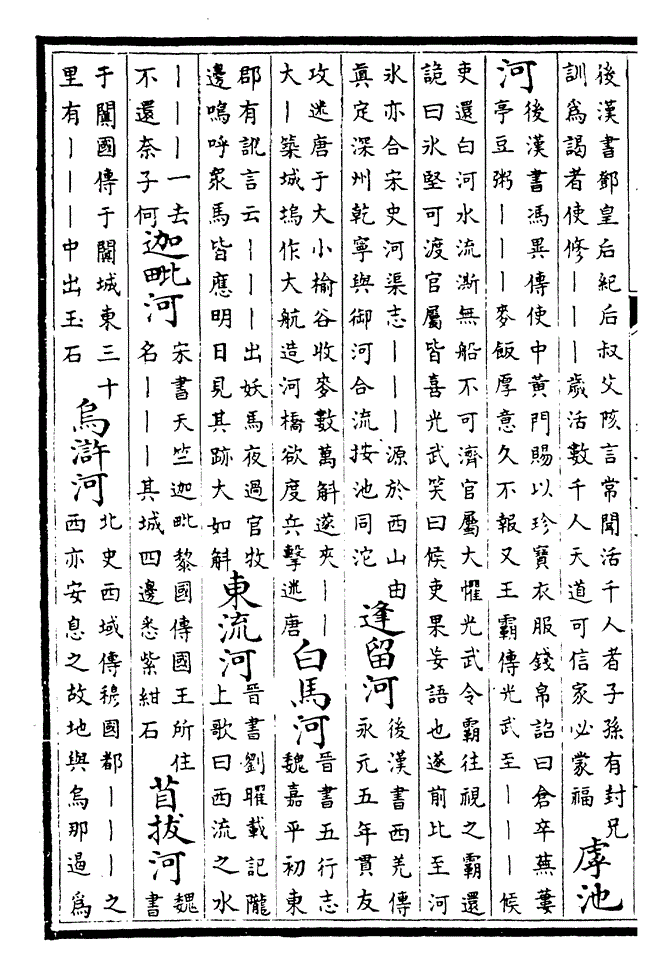 後漢書鄧皇后紀后叔父陔言常聞活千人者子孫有封兄
訓爲謁者使修｜｜｜歲活數千人天道可信家必蒙福
虖池
河
後漢書馮異傳使中黃門賜以珍寶衣服錢帛詔曰倉卒蕪蔞
亭豆粥｜｜｜麥飯厚意久不報又王霸傳光武至｜｜｜候
吏還白河水流澌無船不可濟官屬大懼光武令霸往視之霸還
詭曰氷堅可渡官屬皆喜光武笑曰候吏果妄語也遂前比至河
氷亦合宋史河渠志｜｜｜源於西山由
眞定深州乾寧與御河合流按池同沱
逢留河
後漢書西羌傳
永元五年貫友
攻迷唐于大小榆谷收麥數萬斛遂夾｜｜
大｜築城塢作大航造河橋欲度兵擊迷唐
白馬河
晉書五行志
魏嘉平初東
郡有訛言云｜｜｜出妖馬夜過官牧
邊鳴呼衆馬皆應明日見其跡大如斛
東流河
晉書劉曜載記隴
上歌曰西流之水
｜｜｜一去
不還奈子何
迦毗河
宋書天竺迦毗黎國傳國王所住
名｜｜｜其城四邊悉紫紺石
苜拔河
魏
書
于闐國傳于闐城東三十
里有｜｜｜中出玉石
烏滸河
北史西域傳穆國都｜｜｜之
西亦安息之故地與烏那遏爲